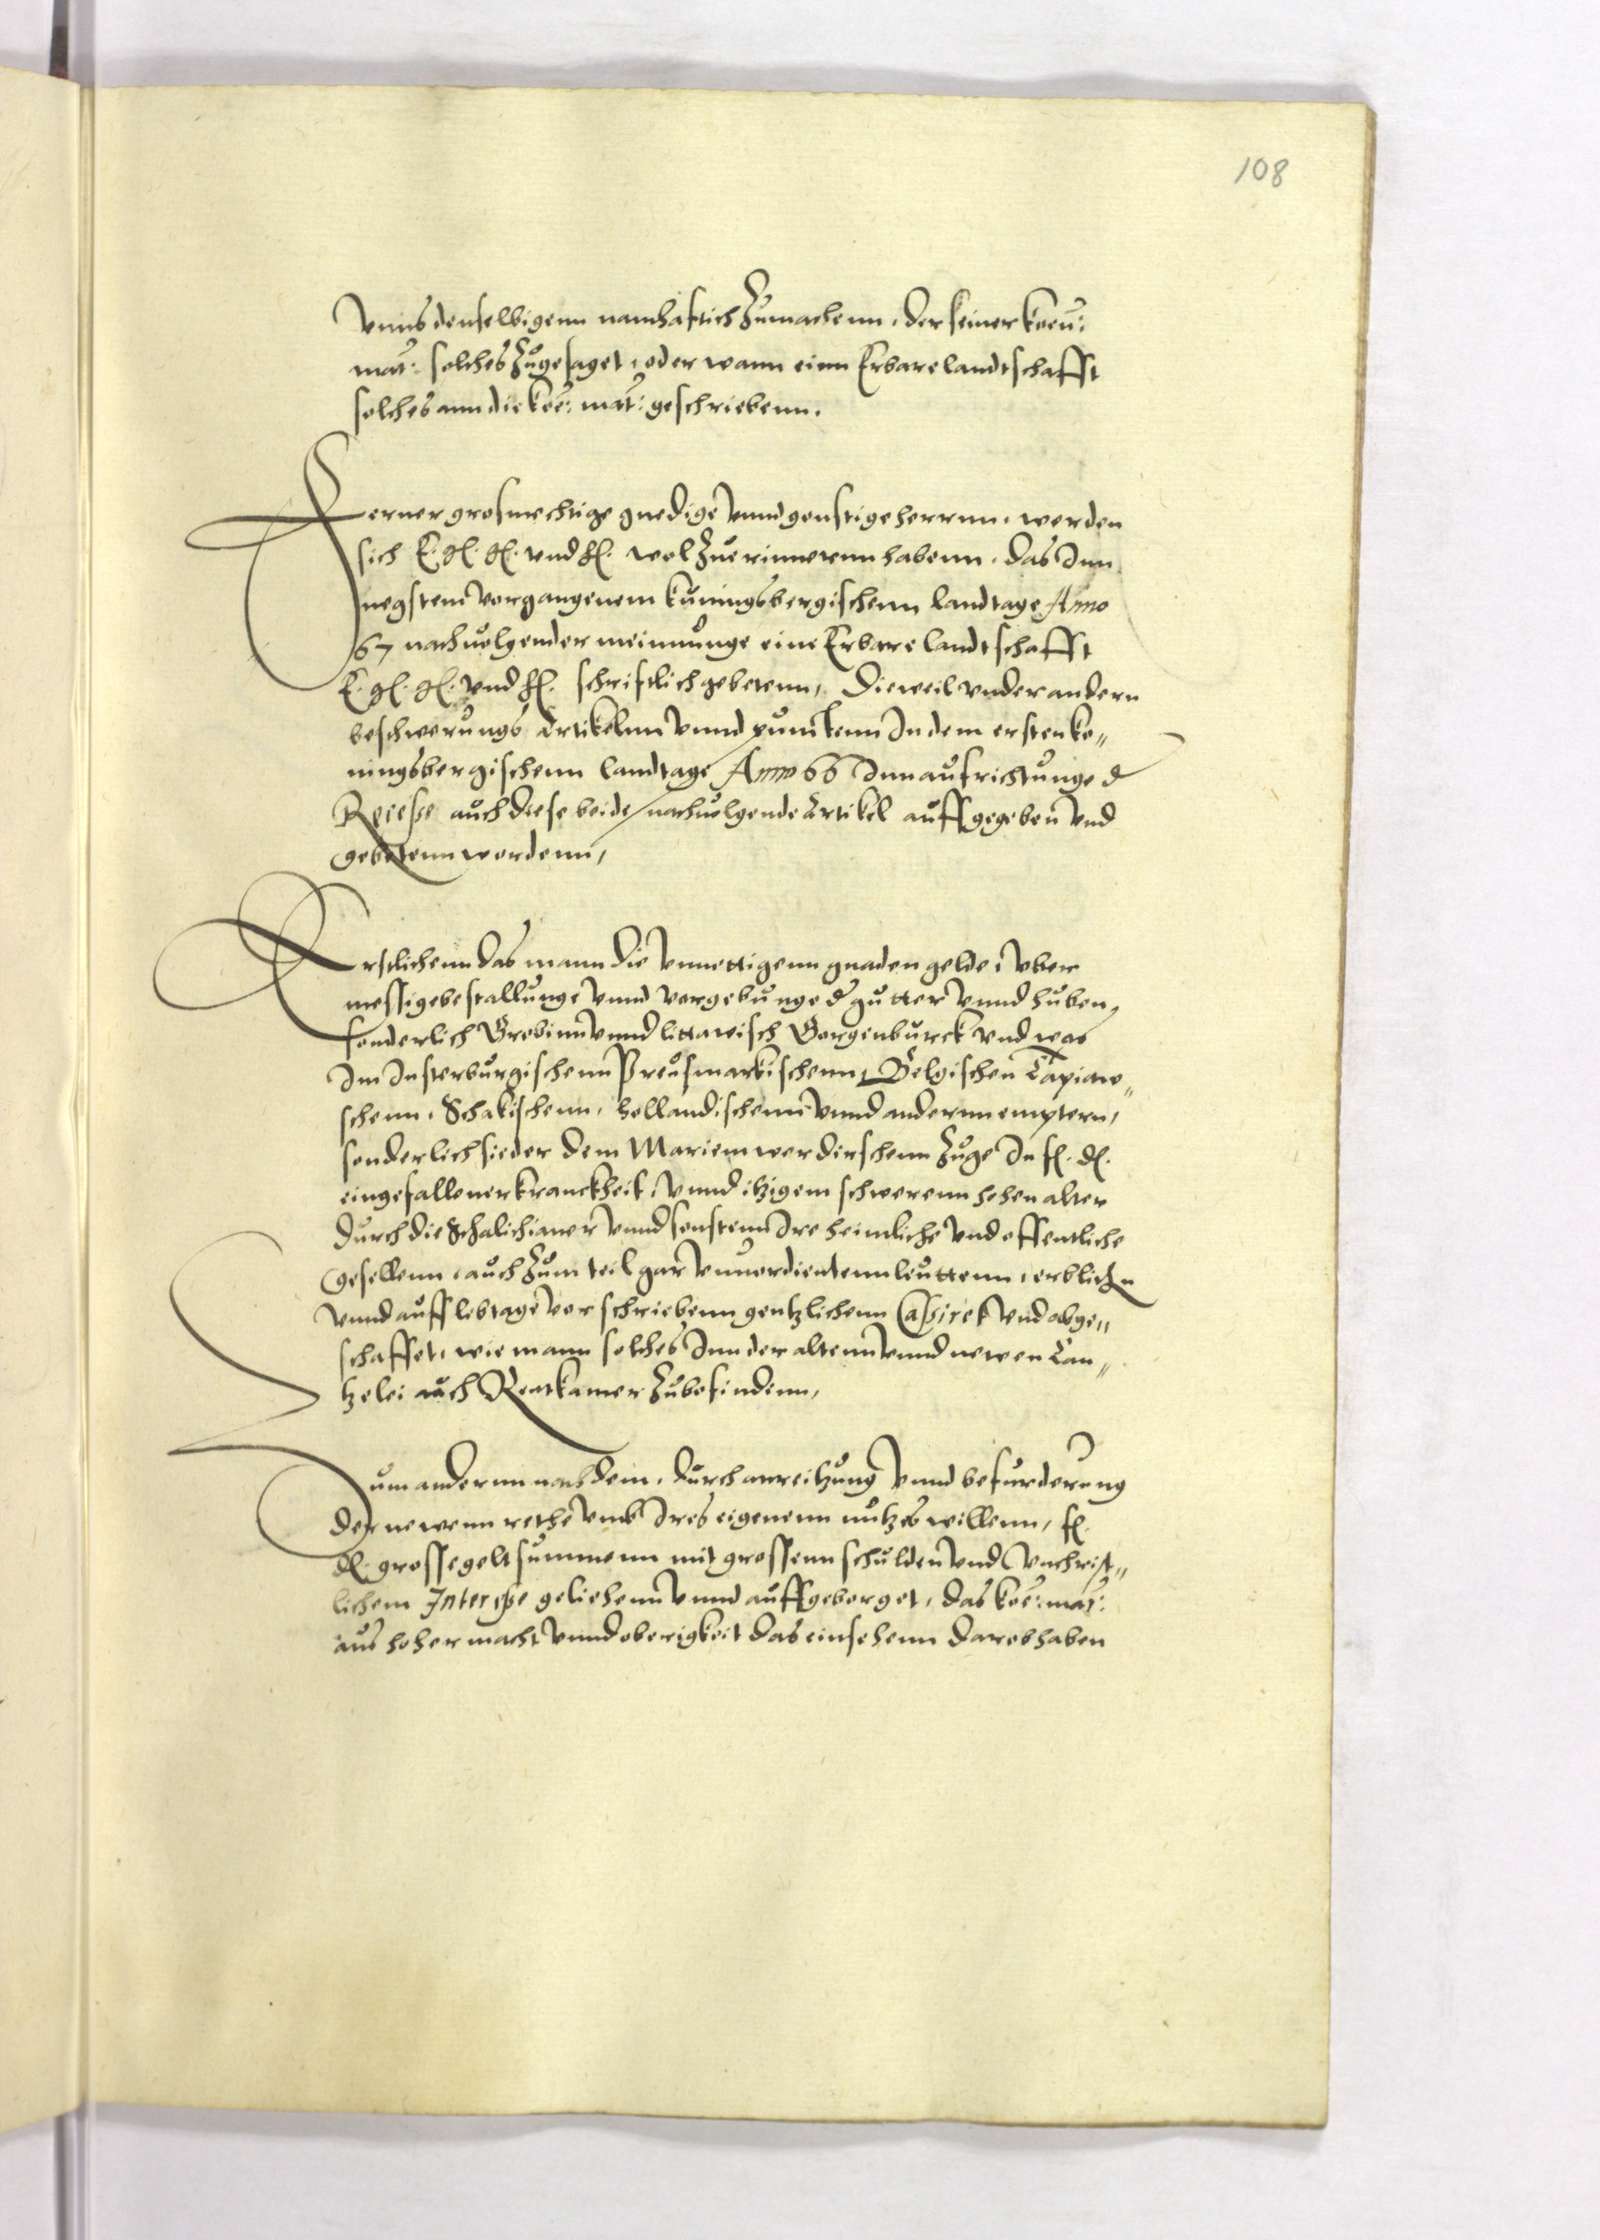 108
Vnns denselbigenn namhaftich Zumachenn, der seiner koen:
mat: solches Zugesaget, oder wann einn Erbare landtschafft
solches ann die koe: mat: geschriebenn.
Ferner grosmechtige gnedige vnnd gonstige herrnn, werden
sich E. gl. gl. vnd hl. wol Zuerinnerenn habenn, das Inn
negstem vorgangenem kuningsbergischenn landtage Anno
67 nachuolgender meinnunge eine Erbare landtschafft
E. gl. gl. vnd hl. schriftlich gebetenn, Dieweil vnder andern
beschwerungs Artikelnn vnnd puncktenn In dem ersten ko„
ningsbergischenn landtage Anno 66 Inn aufrichtunge d
Recesse auch diese beide nachuolgende Artikel auffgegeben vnd
gebetenn wordenn,
Erstlichenn das mann die vnnottigenn gnaden gelde, vber
messige bestallunge vnnd vorgebunge d gutter vnnd huben,
sonderlich Grobinn vnnd littawisch Gorgenburck vnd was
Im Insterburgischenn Preusmarkischenn, Gelgischen Tapiaw„
schenn, Schakischenn, hollandischenn vnnd andernn emptern,
sonderlich sieder dem Mariennwerdirschenn Zuge In fl. dl.
eingefallener kranckheit, vnnd itzigem schwerenn hohen alter
durch die Schalichianer vnnd sonstenn Ire heimliche vnd offentliche
gesellenn, auch Zum teil gar vnuordientenn leuttenn, erblichn
vnnd auff lebtage vorschriebenn gentzlichenn Cassiret vnd abge„
schaffet, wie mann solches Inn der altenn vnnd newen Can„
tzelei auch Rentkamer Zubefindenn,
Zum andernn nachdem, durch anreitzung vnnd befurderung
der newenn rethe vmb Ires eigenenn nutzes willenn, fl.
dl. grosse gelt summenn mit grossenn schulden vnd vnchrist„
lichem Interesse geliehenn vnnd auffgeborget, das koe: mat:
aus hoher macht vnnd oberigkeit das einsehenn darob haben